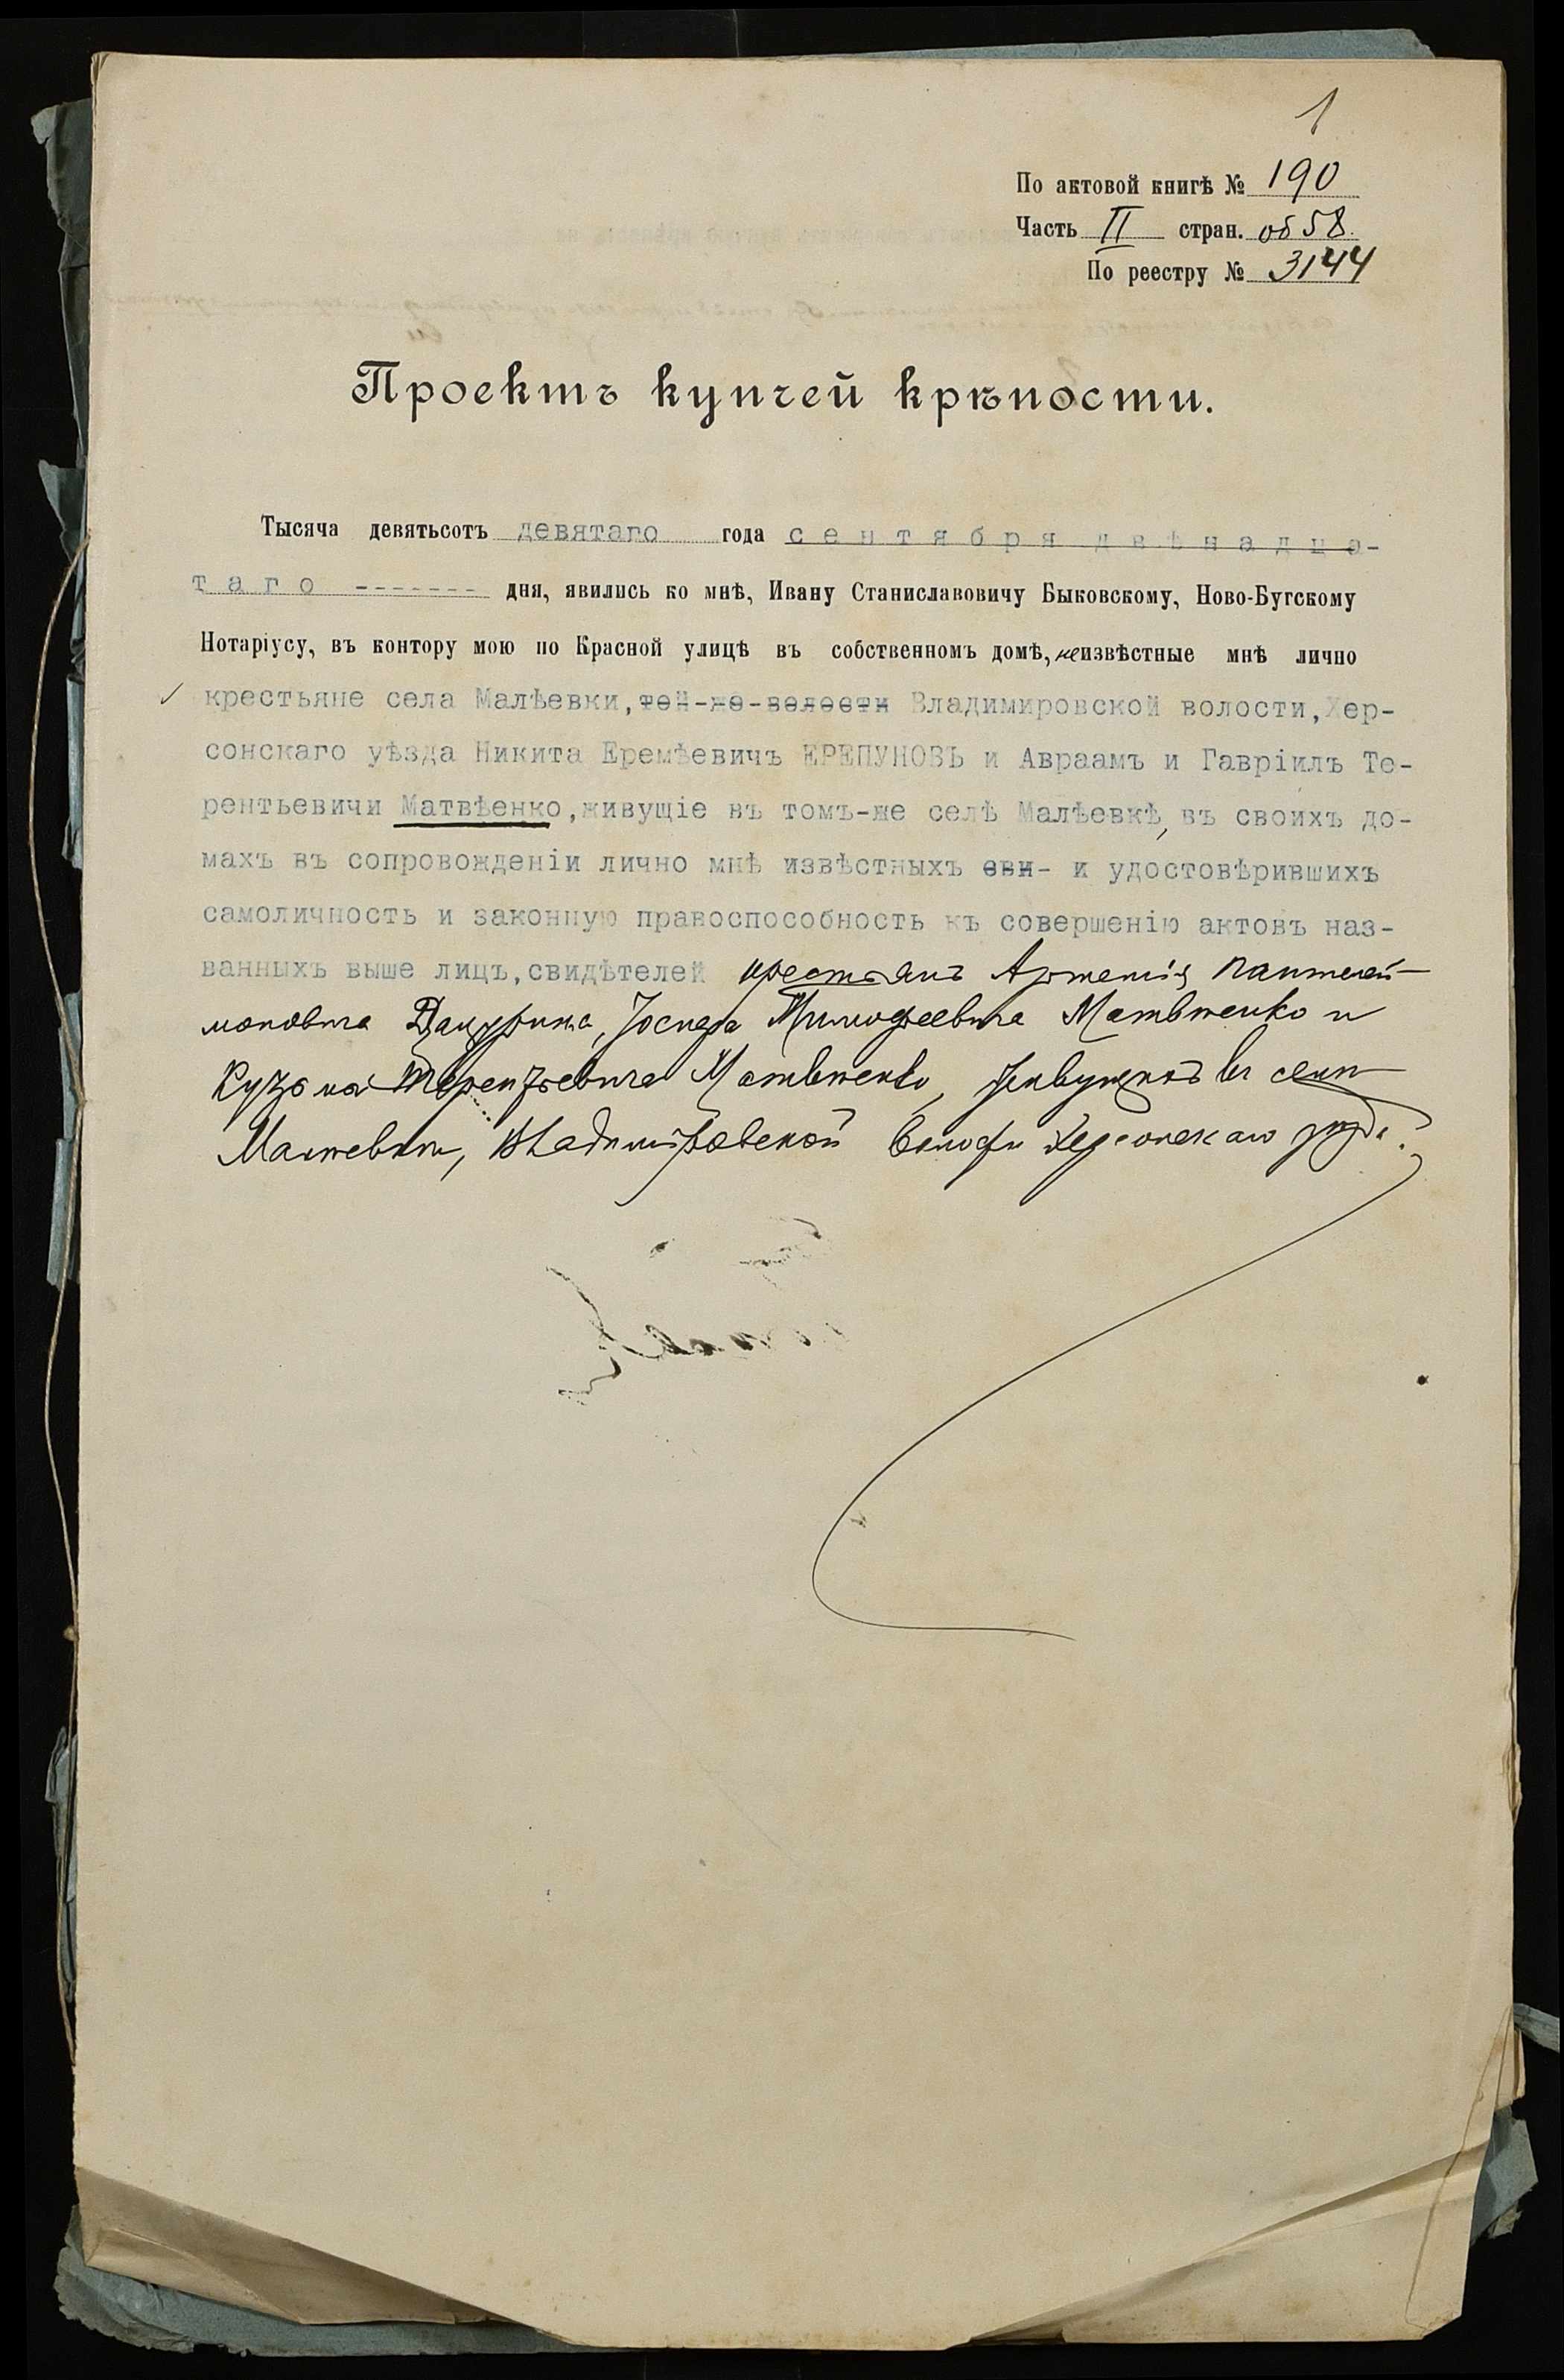 1
По актовой книгѣ № 190
Часть II стран. об 58.
По реестру № 3144
Проектъ купчей крѣпости.
Тысяча девятьсотъ девятаго года сентября двѣнадца-
таго ------- дня, явились ко мнѣ, Ивану Станиславовичу Быковскому, Ново-Бугскому
Нотаріусу, въ контору мою по Красной улицѣ въ собственномъ домѣ, неизвѣстные мнѣ лично
крестьяне села Малѣевки, той-же-волости Владимировской волости, Хер-
сонскаго уѣзда Никита Еремѣевичъ ЕРЕПУНОВЪ и Авраамъ и Гавріилъ Те-
рентьевичи Матвѣенко, живущіе въ томъ-же селѣ Малѣевкѣ, въ своихъ до-
махъ въ сопровожденіи лично мнѣ извѣстныхъ сви- и удостовѣрившихъ
самоличность и законную правоспособность къ совершенію актовъ наз-
ванныхъ выше лицъ, свидѣтелей крестьянъ Артемія Пантелей-
моновича Тимофеевича Матвѣенко и
Кузьма Терентьевича Матвѣенко, живущихъ въ селѣ
Малѣевкѣ, Владимировской волости Херсонскаго уѣзда.